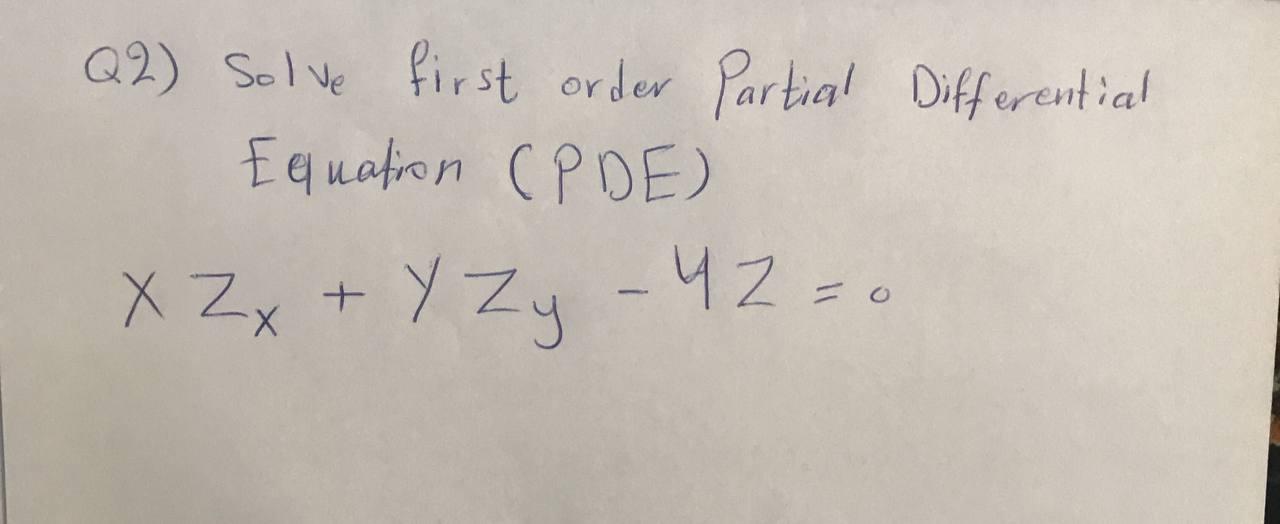 Q2) Solve first order Partial Differential
Equation (PDE)
X Zx + Y Zy - 4Z = 0